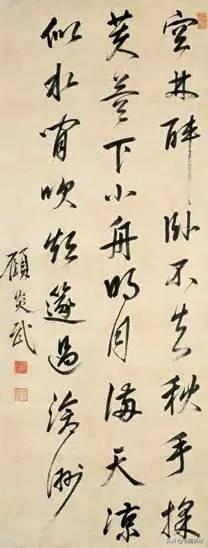 空林醉卧不知秋手採
芙蓉下小舟明月滿天凉
似水閒吹短篴過滄洲
顧炎武